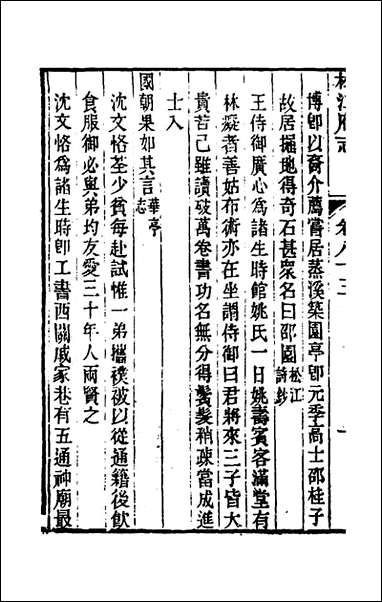 松江府志 卷八十三
博即以裔介薦嘗居蒸溪築園亭即元季高士邵桂子
故居掘地得奇石甚衆名曰邵園松江詩鈔
王侍御廣心爲諸生時館姚氏一日姚壽賓客滿堂有
林癡者善姑布術亦在坐謂侍御曰君將來三子皆大
貴若己雖讀破萬卷書功名無分得鬚髮稍疎當成進
士入
國朝果如其言華亭志
沈文恪荃少貧每赴試惟一弟攜襆被以從通籍後飲
食服御必與弟均友愛三十年人兩賢之
沈文恪爲諸生時卽工書西關戚家巷有五通神廟最